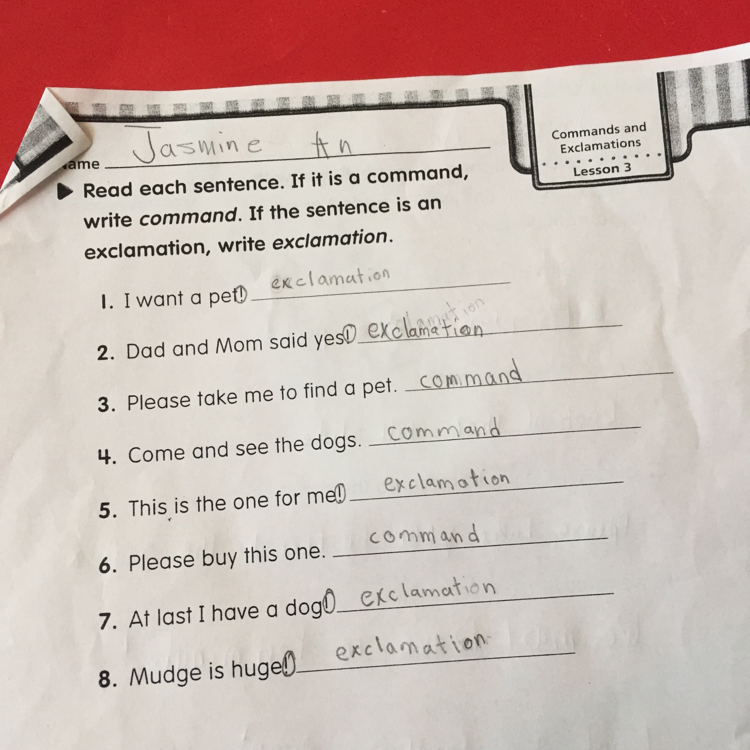 Commands and
Exclamations
Lesson 3
ame Jasmine An
Read each sentence. If it is a command,
write command. If the sentence is an
exclamation, write exclamation.
1. I want a pet! exclamation
2. Dad and Mom said yes! exclamation
3. Please take me to find a pet. command
4. Come and see the dogs. command
5. This is the one for me! exclamation
6. Please buy this one. command
7. At last I have a dog! exclamation
8. Mudge is huge! exclamation